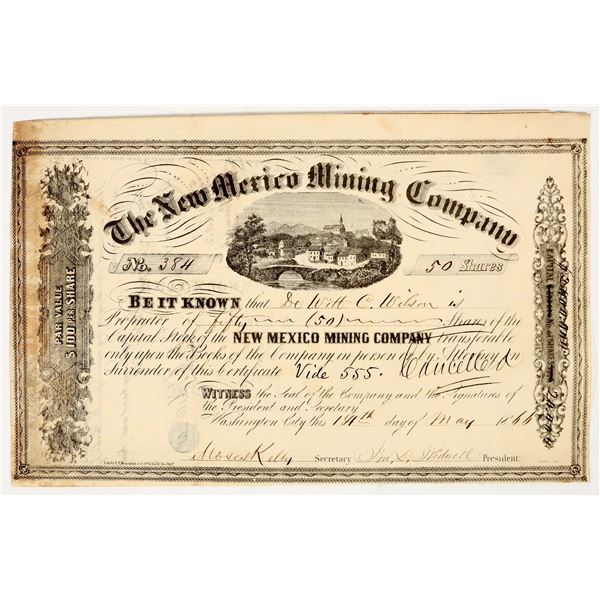 The New Mexico Mining Company
No. 384
50 Shares
PAR VALUE
$100 PER SHARE
BE IT KNOWN that De Witt C. Wilson is
Proprietor of fifty (50) Shares of the
Capital Stock of the NEW MEXICO MINING COMPANY transferable
only upon the Books of the Company in person or by Attorney on
Surrender of this Certificate Vide 555. Cancelled
WITNESS the Seal of the Company and the Signatures of
the President and Secretary
Washington City this 19th day of May 1864
Moses Kelly Secretary Jno. S. President
CAPITAL